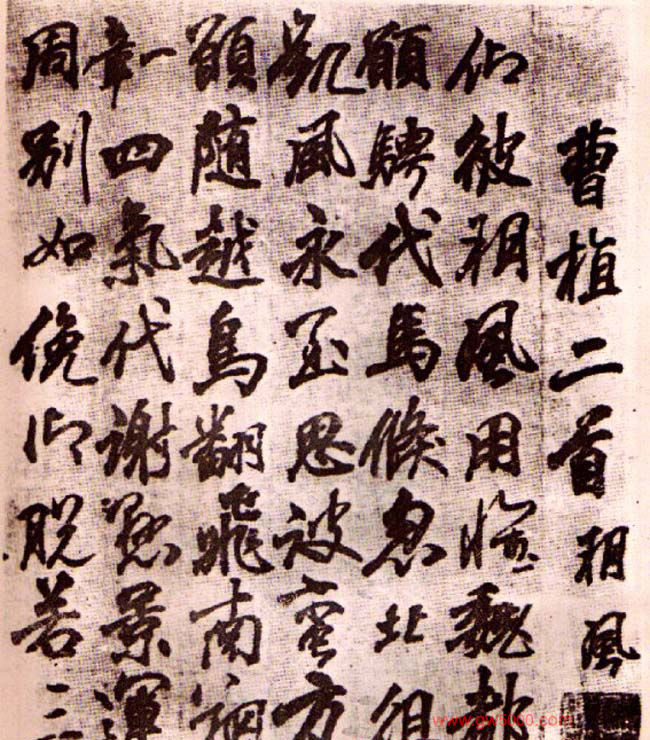 曹植二首朔風
仰彼朔風用懷魏都
願騁代馬倏忽北徂
凱風永至思彼蛮方
願随越鳥翻飛南翔
一章四氣代謝懸景運
周別如俛仰脫若三